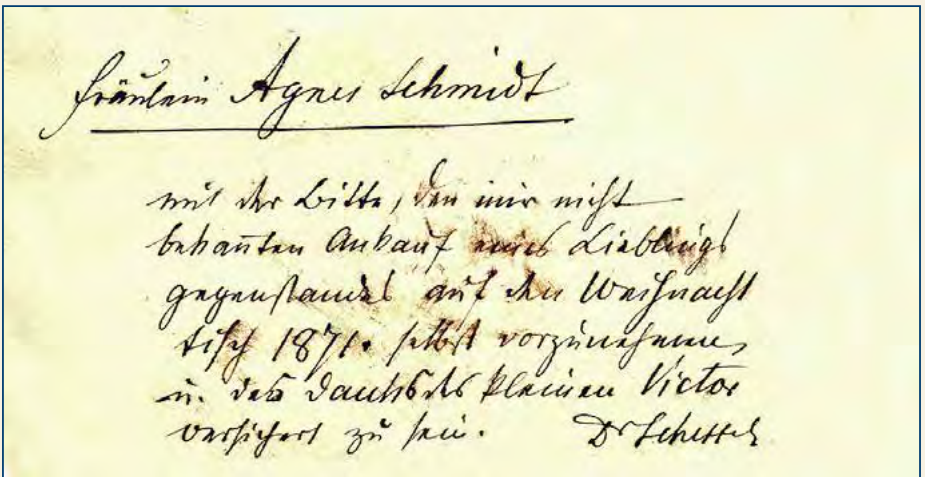 Fräulein Agnes Schmidt
mit der Bitte, den mir nicht
bekannten Ankauf eines Lieblings
gegenstandes auf den Weihnacht
tisch 1871. selbst vorzunehmen,
u. des Danks des kleinen Victor
versichert zu sein. Dr Scheffel